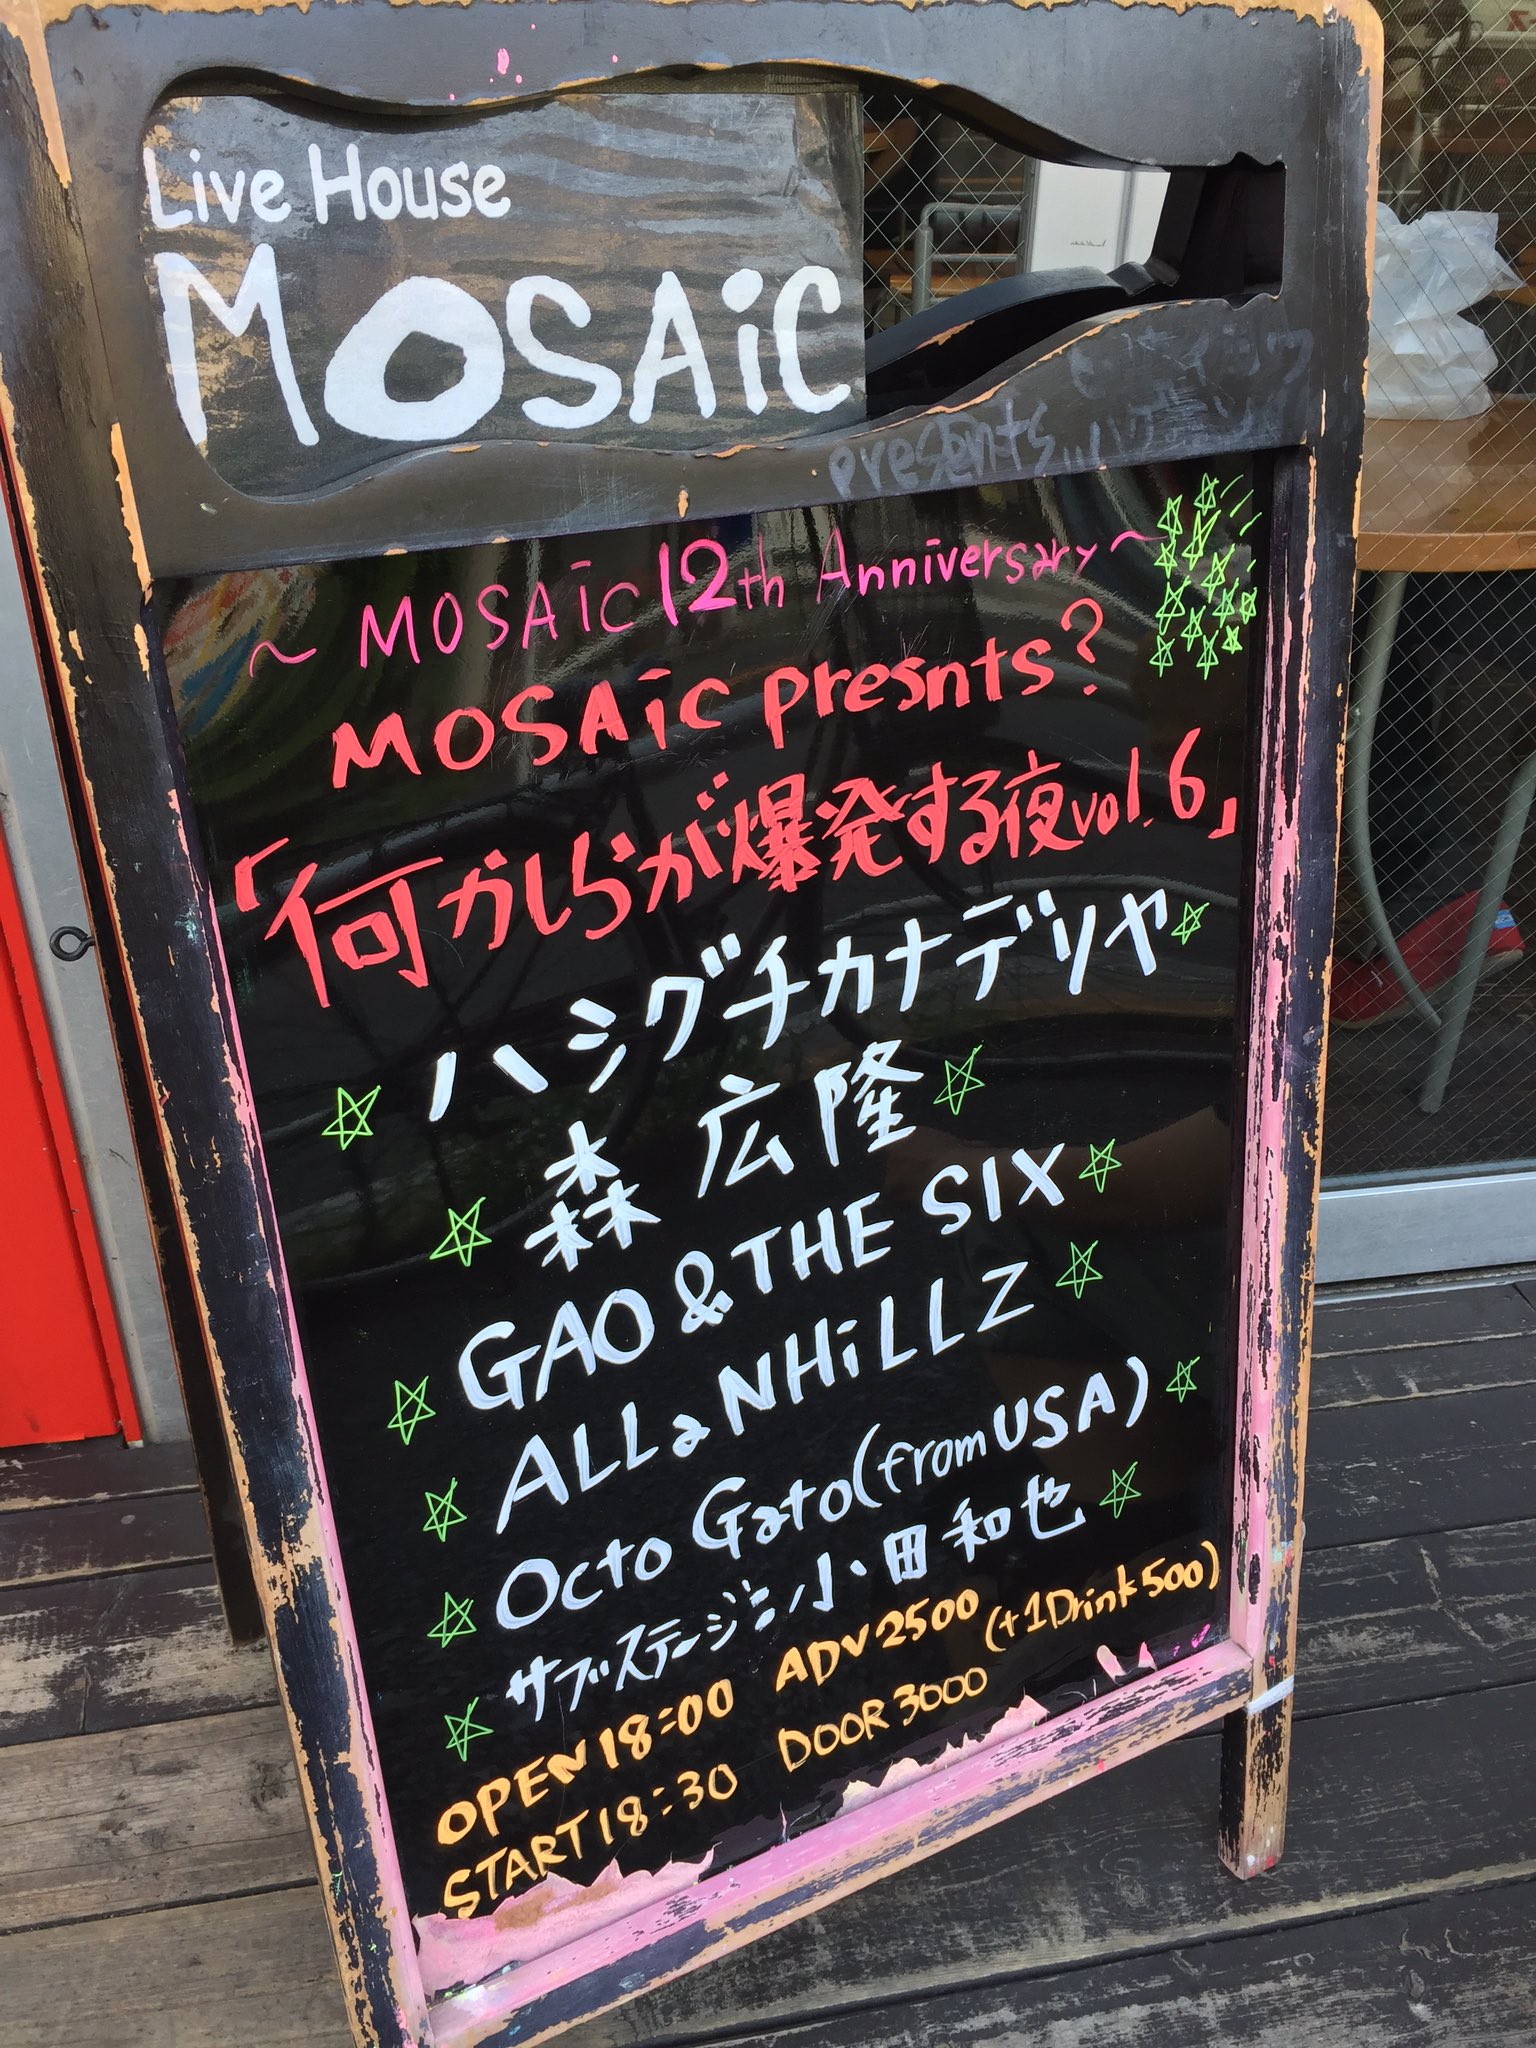 Live House
MOSAiC
presents
～MOSAiC 12th Anniversary～
MOSAiC presnts?
「何かしらが爆発する夜vol.6」
ハシグチカナデリヤ
森 広隆
GAO & THE SIX
ALLaNHiLLZ
Octo Gato (from USA)
サブステージ: 小田和也
OPEN 18:00 ADV 2500
START 18:30 DOOR 3000 (+1Drink 500)